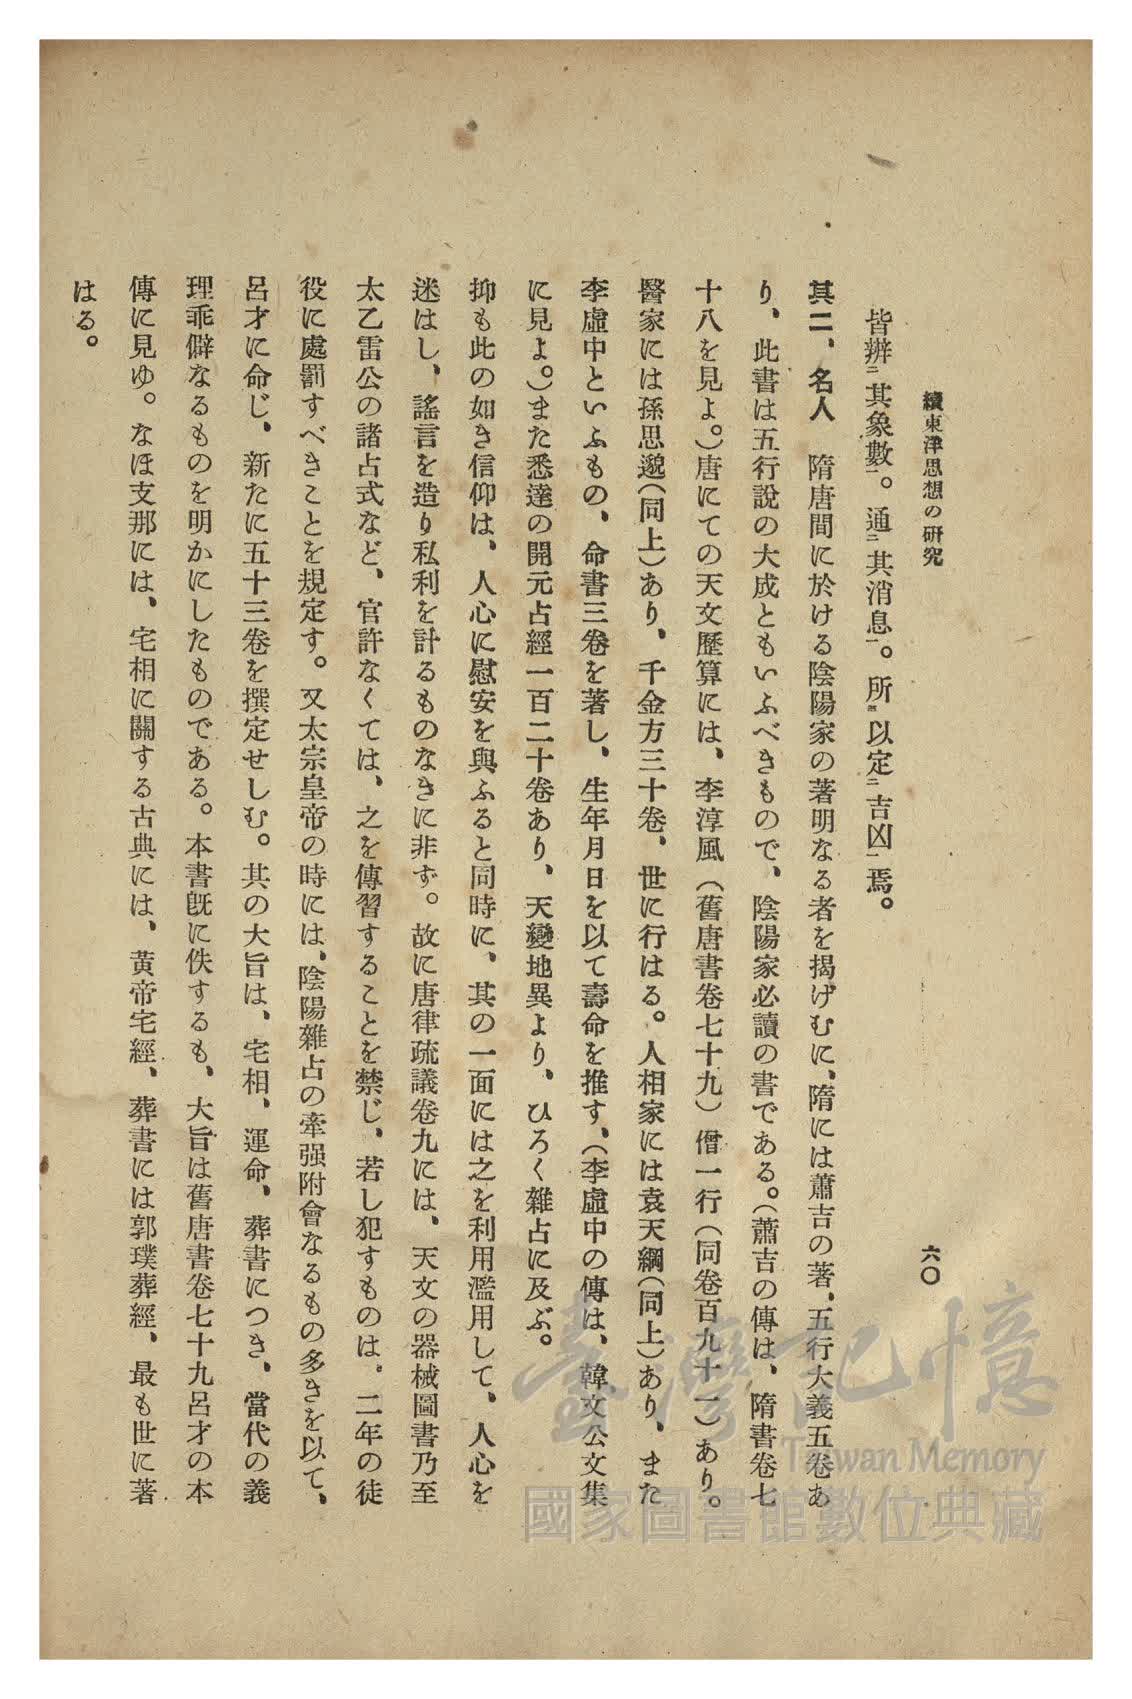 續東洋思想の研究
六〇
皆辨二其象數一。通二其消息一。所三以定二吉凶一焉。
其二、名人　隋唐間に於ける陰陽家の著明なる者を揭げむに、隋には蕭吉の著、五行大義五卷あ
り、此書は五行說の大成ともいふべきもので、陰陽家必讀の書である。（蕭吉の傳は、隋書卷七
十八を見よ。）唐にての天文歷算には、李淳風（舊唐書卷七十九）僧一行（同卷百九十一）あり。
醫家には孫思邈（同上）あり、千金方三十卷、世に行はる。人相家には袁天綱（同上）あり、また
李虛中といふもの、命書三卷を著し、生年月日を以て壽命を推す、（李虛中の傳は、韓文公文集
に見よ。）また悉達の開元占經一百二十卷あり、天變地異より、ひろく雜占に及ぶ。
抑も此の如き信仰は、人心に慰安を與ふると同時に、其の一面には之を利用濫用して、人心を
迷はし、謠言を造り私利を計るものなきに非ず。故に唐律疏議卷九には、天文の器械圖書乃至
太乙雷公の諸占式など、官許なくては、之を傳習することを禁じ、若し犯すものは。二年の徒
役に處罰すべきことを規定す。又太宗皇帝の時には、陰陽雜占の牽强附會なるもの多きを以て、
呂才に命じ、新たに五十三卷を撰定せしむ。其の大旨は、宅相、運命、葬書につき、當代の義
理乖僻なるものを明かにしたものである。本書旣に佚するも、大旨は舊唐書卷七十九呂才の本
傳に見ゆ。なほ支那には、宅相に關する古典には、黃帝宅經、葬書には郭璞葬經、最も世に著
はる。
臺灣記憶
Taiwan Memory
國家圖書館數位典藏